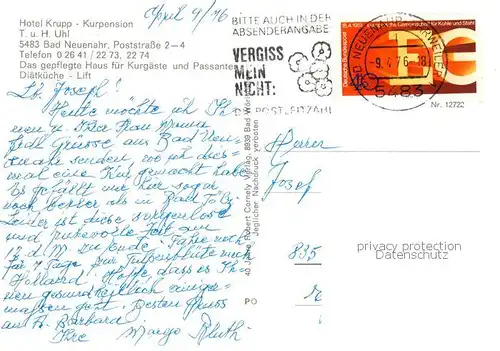 Hotel Krupp - Kurpension
T. u. H. Uhl
5483 Bad Neuenahr, Poststraße 2-4
Telefon 0 26 41 / 22 73, 22 74
Das gepflegte Haus für Kurgäste und Passanten
Diätküche - Lift
April 9/76
BITTE AUCH IN DER
ABSENDERANGABE
VERGISS
MEIN
NICHT:
DIE POSTLEITZAHL
BAD NEUENAHR-AHRWEILER
-9.4.76-18
5483
Deutsche Bundespost
40
Nr. 12722
Lb. Joseph!
Heute möchte ich Ih
nen u. Ihre Frau
Grüsse aus Bad Neu
senden, wo ich dies
mal eine Kur gemacht habe.
Es gefällt mir hier sogar
noch besser als in Bad Tölz.
Leider ist diese sorgenlose
und ruhevolle Zeit am
d. M. zu Ende. Fahre noch
für 4 Tage zur Tulpenblüte nach
Holland! Hoffe, dass es Ih
nen gesundheitlich einiger-
massen geht. Besten Gruss
an Barbara!
Ihre Margo
40 Jahre Robert Cornely Verlag, 8939 Bad Wörishofen
Jeglicher Nachdruck verboten
PO
Herrn
Josef
835
privacy protection
Datenschutz